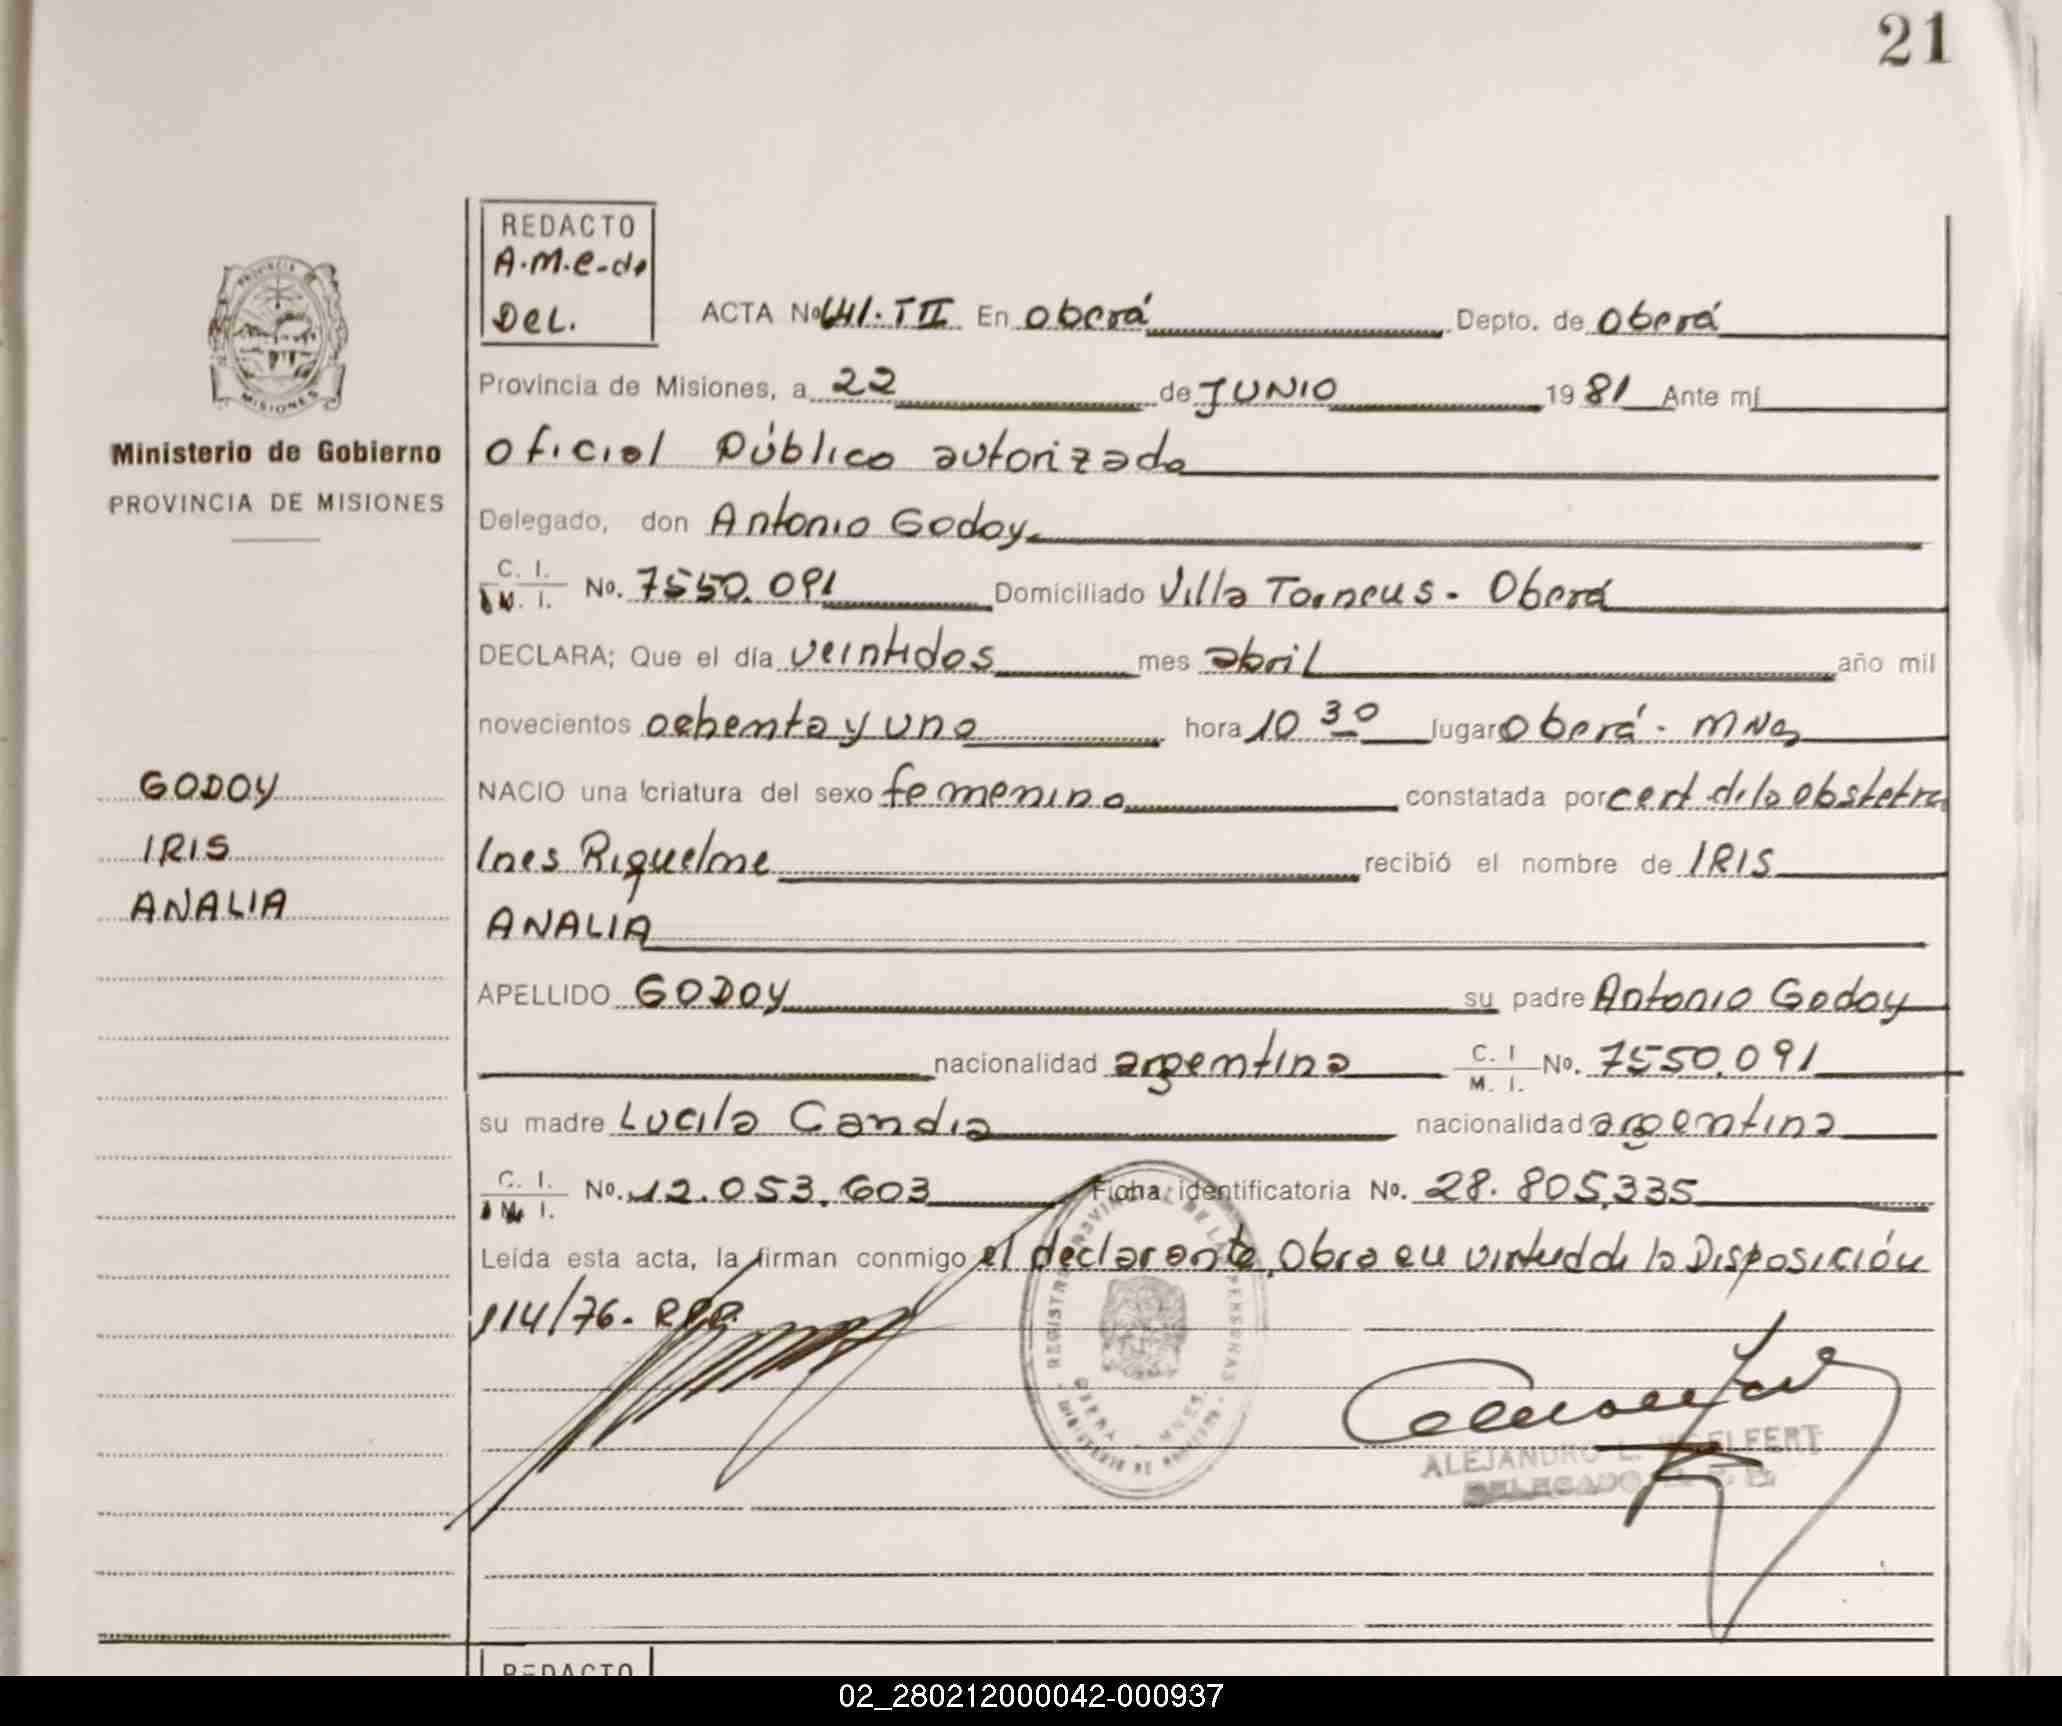 21
REDACTO
A.M.e-de
DeL.
ACTA No 641.TII En Oberá Depto. de Oberá
Provincia de Misiones, a 22 de JUNIO 1981 Ante mí
Oficial Público autorizado
Delegado, don Antonio Godoy
C. I.
M. I. No. 7550.091 Domiciliado Villa Torneus - Oberá
DECLARA; Que el día veintidos mes abril año mil
novecientos ochenta y uno hora 10 30 lugar Oberá - MNes
NACIO una criatura del sexo femenino constatada por cert de la obstetra
Ines Riquelme recibió el nombre de IRIS
ANALIA
APELLIDO GODOY su padre Antonio Godoy
nacionalidad argentina C. I
M. I. No. 7550.091
su madre Lucila Candia nacionalidad argentina
C. I.
M. I. No. 12.053.603 Ficha identificatoria No. 28.805.335
Leída esta acta, la firman conmigo el declarante. Obra en virtud de la Disposición
114/76. RPP.
REGISTRO PROVINCIAL DE LAS PERSONAS
ALEJANDRO L. WOELFERT
DELEGADO
PROVINCIA DE
MISIONES
Ministerio de Gobierno
PROVINCIA DE MISIONES
GODOY
IRIS
ANALIA
REDACTO
02_280212000042-000937